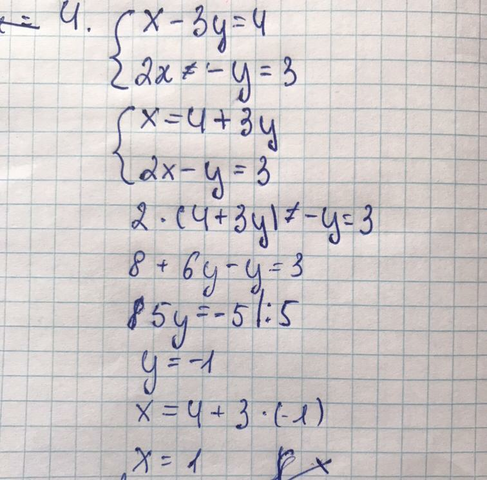 4. { x - 3y = 4
{ 2x - y = 3
{ x = 4 + 3y
{ 2x - y = 3
2 · (4 + 3y) - y = 3
8 + 6y - y = 3
5y = -5 |:5
y = -1
x = 4 + 3 · (-1)
x = 1